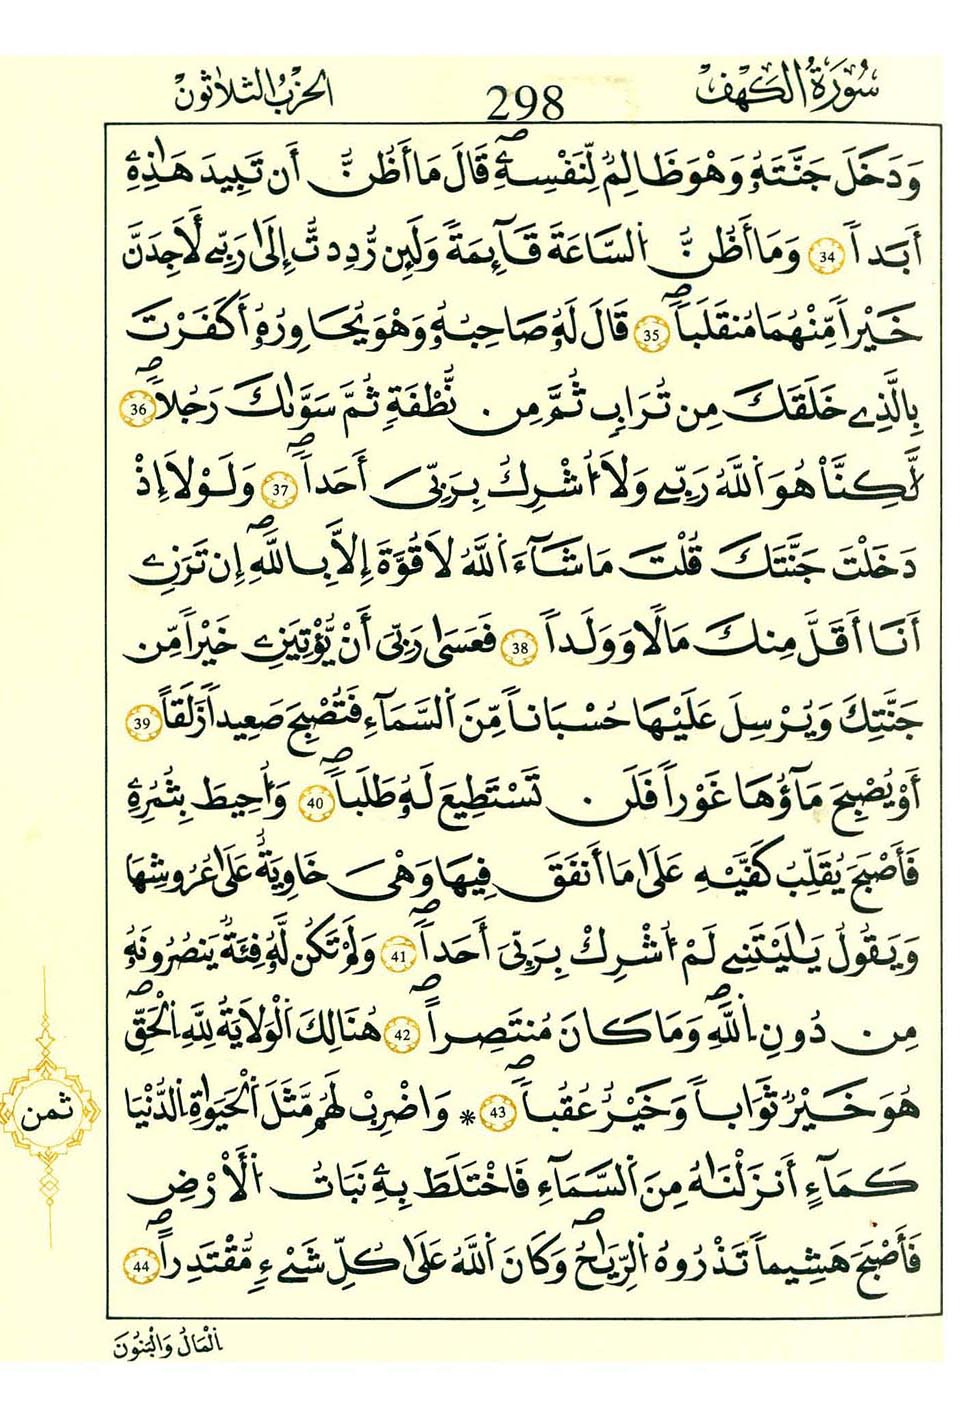 سُورَةُ الكَهْفِ
298
الحِزْبُ الثلاثون
وَدَخَلَ جَنَّتَهُۥ وَهْوَ ظَالِمٌ لِّنَفْسِهِۦۖ قَالَ مَا أَظُنُّ أَن تَبِيدَ هَٰذِهِۦ
أَبَداً 34 وَمَا أَظُنُّ اُ۬لسَّاعَةَ قَآئِمَةً وَلَئِن رُّدِدتُّ إِلَىٰ رَبِّے لَأَجِدَنَّ
خَيْراً مِّنْهُمَا مُنقَلَباًۖ 35 قَالَ لَهُۥ صَاحِبُهُۥ وَهْوَ يُحَاوِرُهُۥ أَكَفَرْتَ
بِالَّذِے خَلَقَكَ مِن تُرَابٍ ثُمَّ مِن نُّطْفَةٍ ثُمَّ سَوَّىٰكَ رَجُلاًۖ 36
لَّٰكِنَّا۠ هُوَ اَ۬للَّهُ رَبِّے وَلَا أُشْرِكُ بِرَبِّيَ أَحَداًۖ 37 وَلَوْلَا إِذْ
دَخَلْتَ جَنَّتَكَ قُلْتَ مَا شَآءَ اَ۬للَّهُ لَا قُوَّةَ إِلَّا بِاللَّهِۖ إِن تَرَنِۦ
أَنَا أَقَلَّ مِنكَ مَالًا وَوَلَداً 38 فَعَسَىٰ رَبِّيَ أَنْ يُّؤْتِيَنِۦ خَيْراً مِّن
جَنَّتِكَ وَيُرْسِلَ عَلَيْهَا حُسْبَاناً مِّنَ اَ۬لسَّمَآءِ فَتُصْبِحَ صَعِيداً زَلَقاً 39
أَوْ يُصْبِحَ مَآؤُهَا غَوْراً فَلَن تَسْتَطِيعَ لَهُۥ طَلَباًۖ 40 وَأُحِيطَ بِثُمُرِهِۦ
فَأَصْبَحَ يُقَلِّبُ كَفَّيْهِ عَلَىٰ مَا أَنفَقَ فِيهَا وَهْيَ خَاوِيَةٌ عَلَىٰ عُرُوشِهَا
وَيَقُولُ يَٰلَيْتَنِے لَمْ أُشْرِكْ بِرَبِّيَ أَحَداًۖ 41 وَلَمْ تَكُن لَّهُۥ فِئَةٌ يَنصُرُونَهُۥ
مِن دُونِ اِ۬للَّهِۖ وَمَا كَانَ مُنتَصِراًۖ 42 هُنَالِكَ اَ۬لْوَلَايَةُ لِلَّهِ اِ۬لْحَقِّۖ
هُوَ خَيْرٌ ثَوَاباً وَخَيْرٌ عُقُباًۖ 43 * وَاضْرِبْ لَهُم مَّثَلَ اَ۬لْحَيَوٰةِ اِ۬لدُّنْيَا
كَمَآءٍ أَنزَلْنَٰهُ مِنَ اَ۬لسَّمَآءِ فَاخْتَلَطَ بِهِۦ نَبَاتُ اُ۬لْأَرْضِ
فَأَصْبَحَ هَشِيماً تَذْرُوهُ اُ۬لرِّيَٰحُۖ وَكَانَ اَ۬للَّهُ عَلَىٰ كُلِّ شَےْءٍ مُّقْتَدِراًۖ 44
ثمن
اُ۬لْمَالُ وَالْبَنُونَ